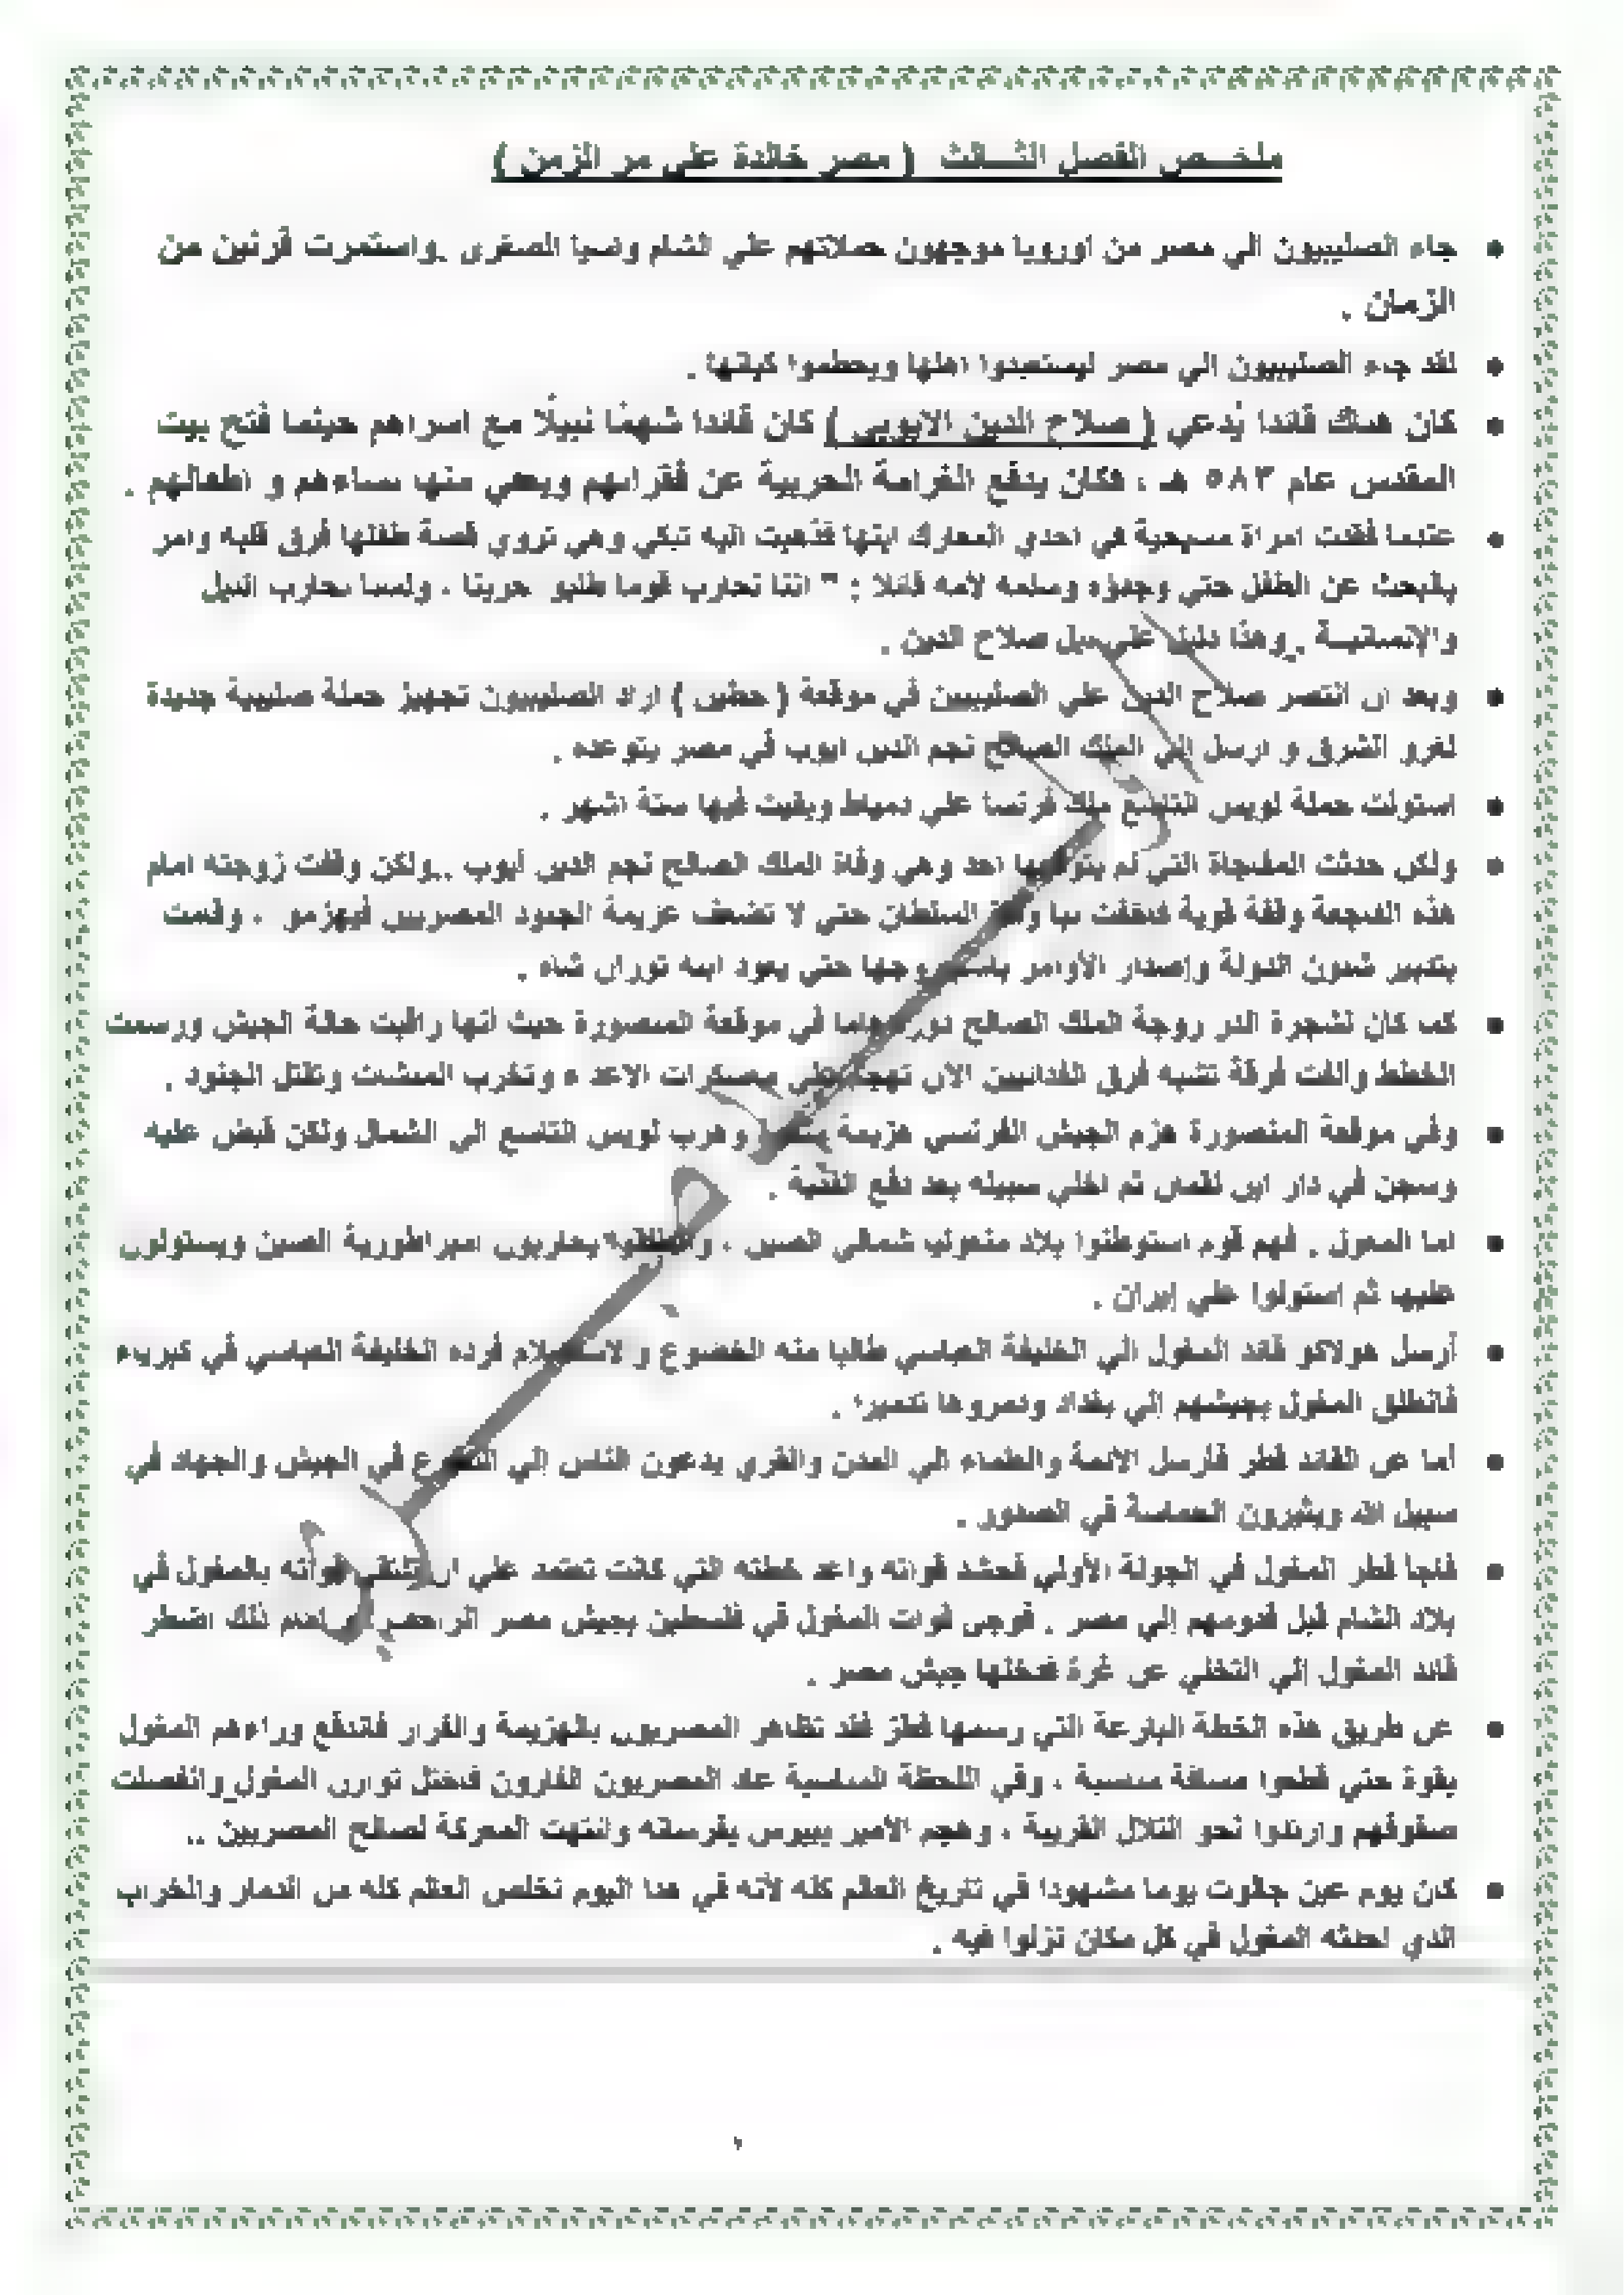 ملخـــص الفصل الثـــالث ( مصر خالدة على مر الزمن )
جاء الصليبيون الي مصر من اوروبا موجهون حملاتهم علي الشام واسيا الصغرى ..واستمرت قرنين من
الزمان .
لقد جاء الصليبيون الي مصر ليستعبدوا اهلها ويحطموا كيانها .
كان هناك قائدا يُدعي ( صلاح الدين الايوبي ) كان قائدا شهمًا نبيلًا مع اسراهم حينما فتح بيت
المقدس عام ٥٨٣ هـ ، فكان يدفع الغرامة الحربية عن فقرائهم ويعفي منها نساءهم و اطفالهم .
عندما فقدت امراة مسيحية في احدي المعارك ابنها فذهبت اليه تبكي وهي تروي قصة طفلها فرق قلبه وامر
بالبحث عن الطفل حتي وجدوه وسلمه لأمه قائلا : " اننا نحارب قوما طلبو حربنا ، ولسنا نحارب النبل
والإنسانيـــة ..وهذا دليل علي نبل صلاح الدين .
وبعد ان انتصر صلاح الدين علي الصليبيين في موقعة ( حطين ) اراد الصليبيون تجهيز حملة صليبية جديدة
لغزو الشرق و ارسل إلي الملك الصالح نجم الدين ايوب في مصر يتوعده .
استولت حملة لويس التاسع ملك فرنسا علي دمياط وبقيت فيها ستة اشهر .
ولكن حدثت المفاجاة التي لم يتوقعها احد وهي وفاة الملك الصالح نجم الدين أيوب ..ولكن وقفت زوجته امام
هذه الفجعة وقفة قوية فاخفت نبا وفاة السلطان حتي لا تضعف عزيمة الجنود المصريين فيهزمو ، وقامت
بتدبير شئون الدولة وإصدار الأوامر باسم زوجها حتي يعود ابنه توران شاه .
كما كان لشجرة الدر زوجة الملك الصالح دورا هاما في موقعة المنصورة حيث أنها راقبت حالة الجيش ورسمت
الخطط والفت فرقة تشبه فرق الفدائيين الأن تهجم علي معسكرات الاعداء وتخرب المنشات وتقتل الجنود .
وفي موقعة المنصورة هزم الجيش الفرنسي هزيمة وهرب لويس التاسع الى الشمال ولكن قبض عليه
وسجن في دار ابن لقمان ثم اخلي سبيله بعد دفع الفدية .
اما المغول . فهم قوم استوطنوا بلاد منغوليا شمالي الصين ، وانطلقوا يحاربون امبراطورية الصين ويستولون
عليها ثم إستولوا علي إيران .
أرسل هولاكو قائد المغول الي الخليفة العباسي طالبا منه الخضوع و لاستسلام فرده الخليفة العباسي في كبرياء
فانطلق المغول بجيشهم إلي بغداد ودمروها تدميرا .
أما عن القائد قطز فأرسل الائمة والعلماء الي المدن والقري يدعون الناس إلي التطوع في الجيش والجهاد في
سبيل الله ويثيرون الحماسة في الصدور .
فاجأ قطز المغول في الجولة الأولي فحشد قواته واعد خطته التي كانت تعتمد علي ان تلتقي قواته بالمغول في
بلاد الشام قبل قدومهم إلي مصر . فوجئ قوات المغول في فلسطين بجيش مصر الزاحف وامام ذلك اضطر
قائد المغول إلي التخلي عن غزة فدخلها جيش مصر .
عن طريق هذه الخطة البارعة التي رسمها قطز فقد تظاهر المصريون بالهزيمة والفرار فاندفع وراءهم المغول
بقوة حتي قطعوا مسافة مناسبة ، وفي اللحظة المناسبة عاد المصريون الفارون فاختل توازن المغول وانفصلت
صفوفهم وارتدوا نحو التلال القريبة ، وهجم الأمير بيبرس بفرسانه وانتهت المعركة لصالح المصريين ..
كان يوم عين جالوت يوما مشهودا في تاريخ العالم كله لأنه في هذا اليوم تخلص العالم كله من الدمار والخراب
الذي احدثه المغول في كل مكان نزلوا فيه .